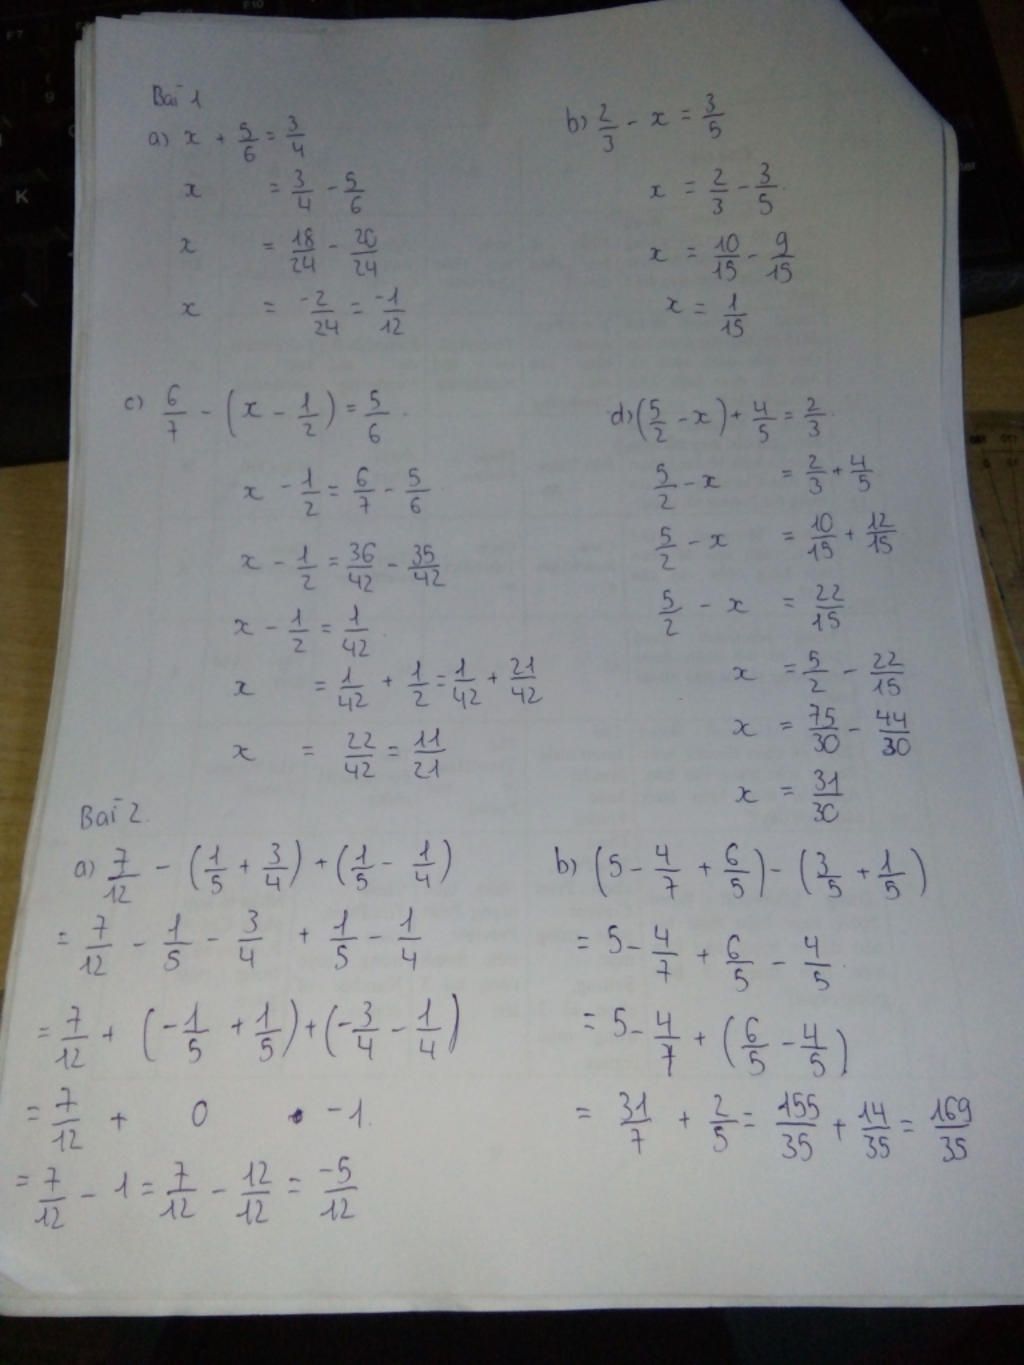 Bài 1
a) x + 5/6 = 3/4
x = 3/4 - 5/6
x = 18/24 - 20/24
x = -2/24 = -1/12
b) 2/3 - x = 3/5
x = 2/3 - 3/5
x = 10/15 - 9/15
x = 1/15
c) 6/7 - (x - 1/2) = 5/6
x - 1/2 = 6/7 - 5/6
x - 1/2 = 36/42 - 35/42
x - 1/2 = 1/42
x = 1/42 + 1/2 = 1/42 + 21/42
x = 22/42 = 11/21
d) (5/2 - x) + 4/5 = 2/3
5/2 - x = 2/3 + 4/5
5/2 - x = 10/15 + 12/15
5/2 - x = 22/15
x = 5/2 - 22/15
x = 75/30 - 44/30
x = 31/30
Bài 2.
a) 7/12 - (1/5 + 3/4) + (1/5 - 1/4)
= 7/12 - 1/5 - 3/4 + 1/5 - 1/4
= 7/12 + (-1/5 + 1/5) + (-3/4 - 1/4)
= 7/12 + 0 - 1
= 7/12 - 1 = 7/12 - 12/12 = -5/12
b) (5 - 4/7 + 6/5) - (3/5 + 1/5)
= 5 - 4/7 + 6/5 - 4/5
= 5 - 4/7 + (6/5 - 4/5)
= 31/7 + 2/5 = 155/35 + 14/35 = 169/35
F7
F10
K